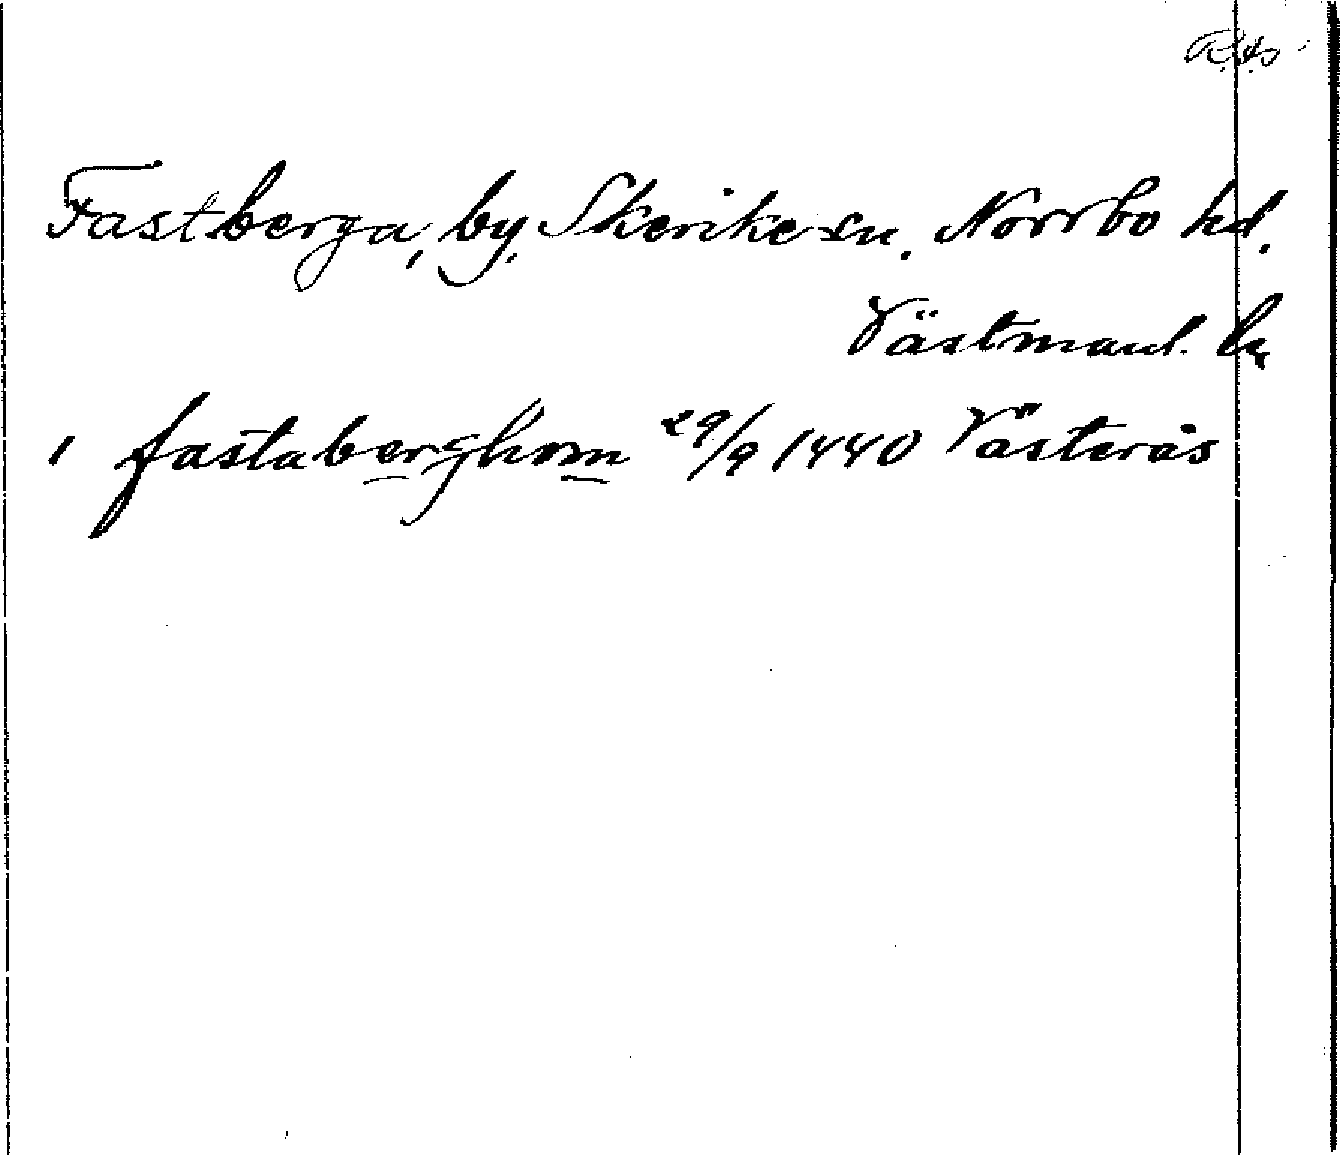 R.A.
Fastberga, by. Skerike sn. Norrbo hd.
Västmanl. l.
i fastaberghom 29/9 1440 Västerås